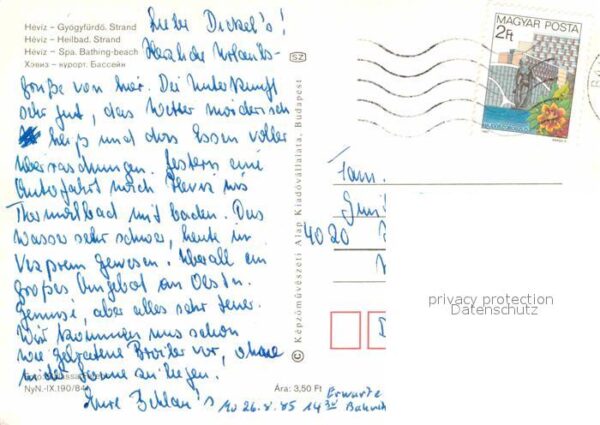 Hévíz – Gyógyfürdő. Strand
Hévíz – Heilbad. Strand
Hévíz – Spa. Bathing-beach
Хэвиз – курорт. Бассейн
SZ
MAGYAR POSTA
2Ft
Liebe Dickel's!
Herzliche Urlaubs-
grüße von hier. Die Unterkunft
sehr gut, das Wetter mörderisch
heiß und das Essen voller
Überraschungen. Gestern eine
Autofahrt nach Heviz ins
Thermalbad mit baden. Das
Wasser sehr schwer, heute in
Veszprem gewesen. Überall ein
großes Angebot an Obst u.
Gemüse, aber alles sehr teuer.
Wir kommen uns schon
wie gebratene Broiler vor, ohne
in der Sonne zu liegen.
Eure
Mo 26.8.85 14 30
Erwarte
Fam.
4020
© Képzőművészeti Alap Kiadóvállalata, Budapest
NyN.-IX.190/84
Ára: 3,50 Ft
privacy protection
Datenschutz